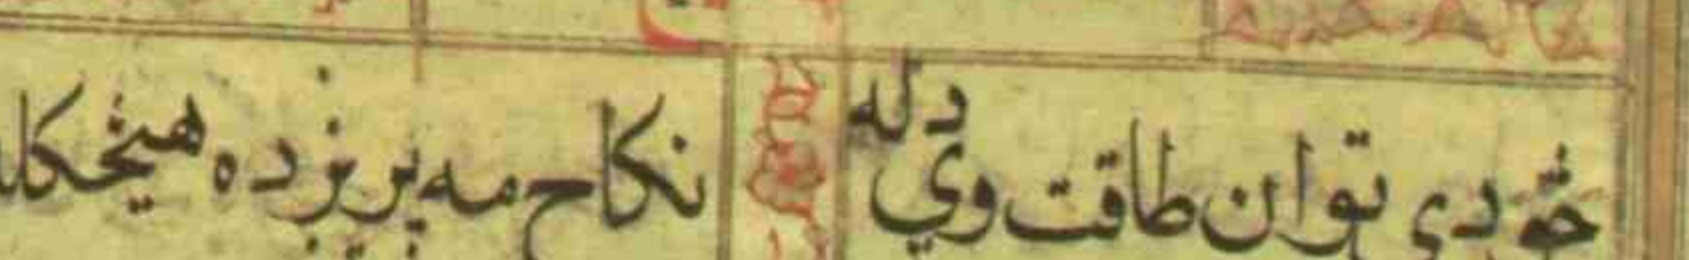 څو دې توان طاقت وي دله
نکاح مه پرېږده هيڅکله